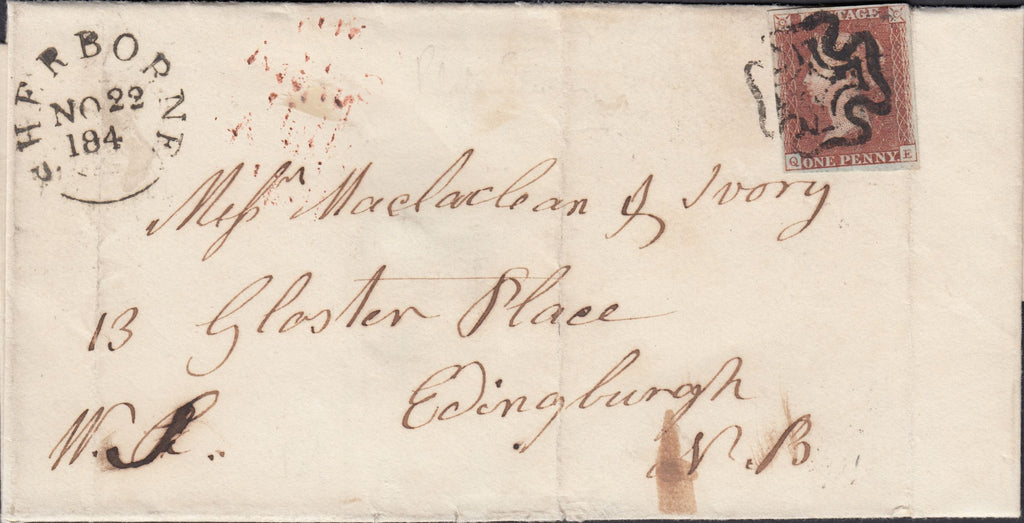 SHERBORNE
NO 22
184
POSTAGE
Q ONE PENNY E
Messrs Maclaclean & Ivory
13 Gloster Place
Edingburgh
W.S. N.B